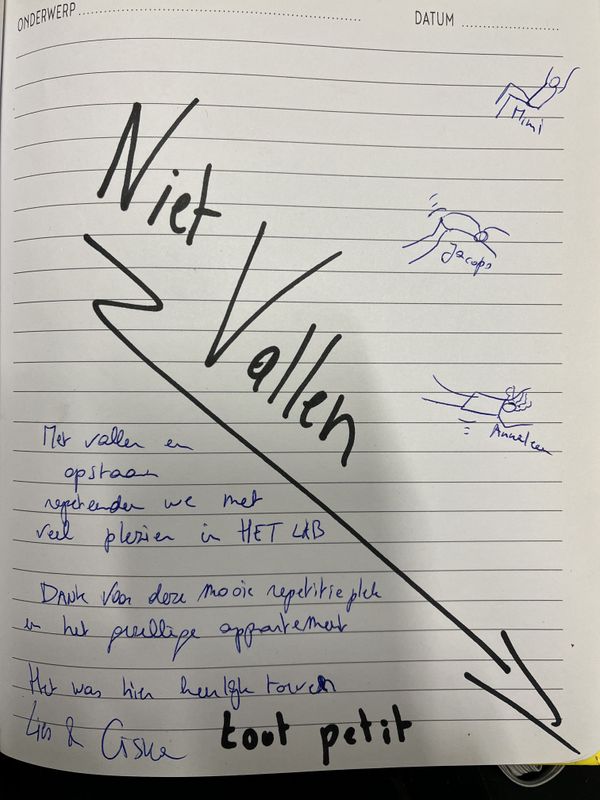 ONDERWERP
DATUM
Mimi
Niet
Jacopo
Vallen
Anneleen
Met vallen en
opstaan
repeteerden we met
veel plezier in HET LAB
Dank voor deze mooie repetitieplek
en het gezellige appartement
Het was hier heerlijk toeven
Lies & Ciska
tout petit